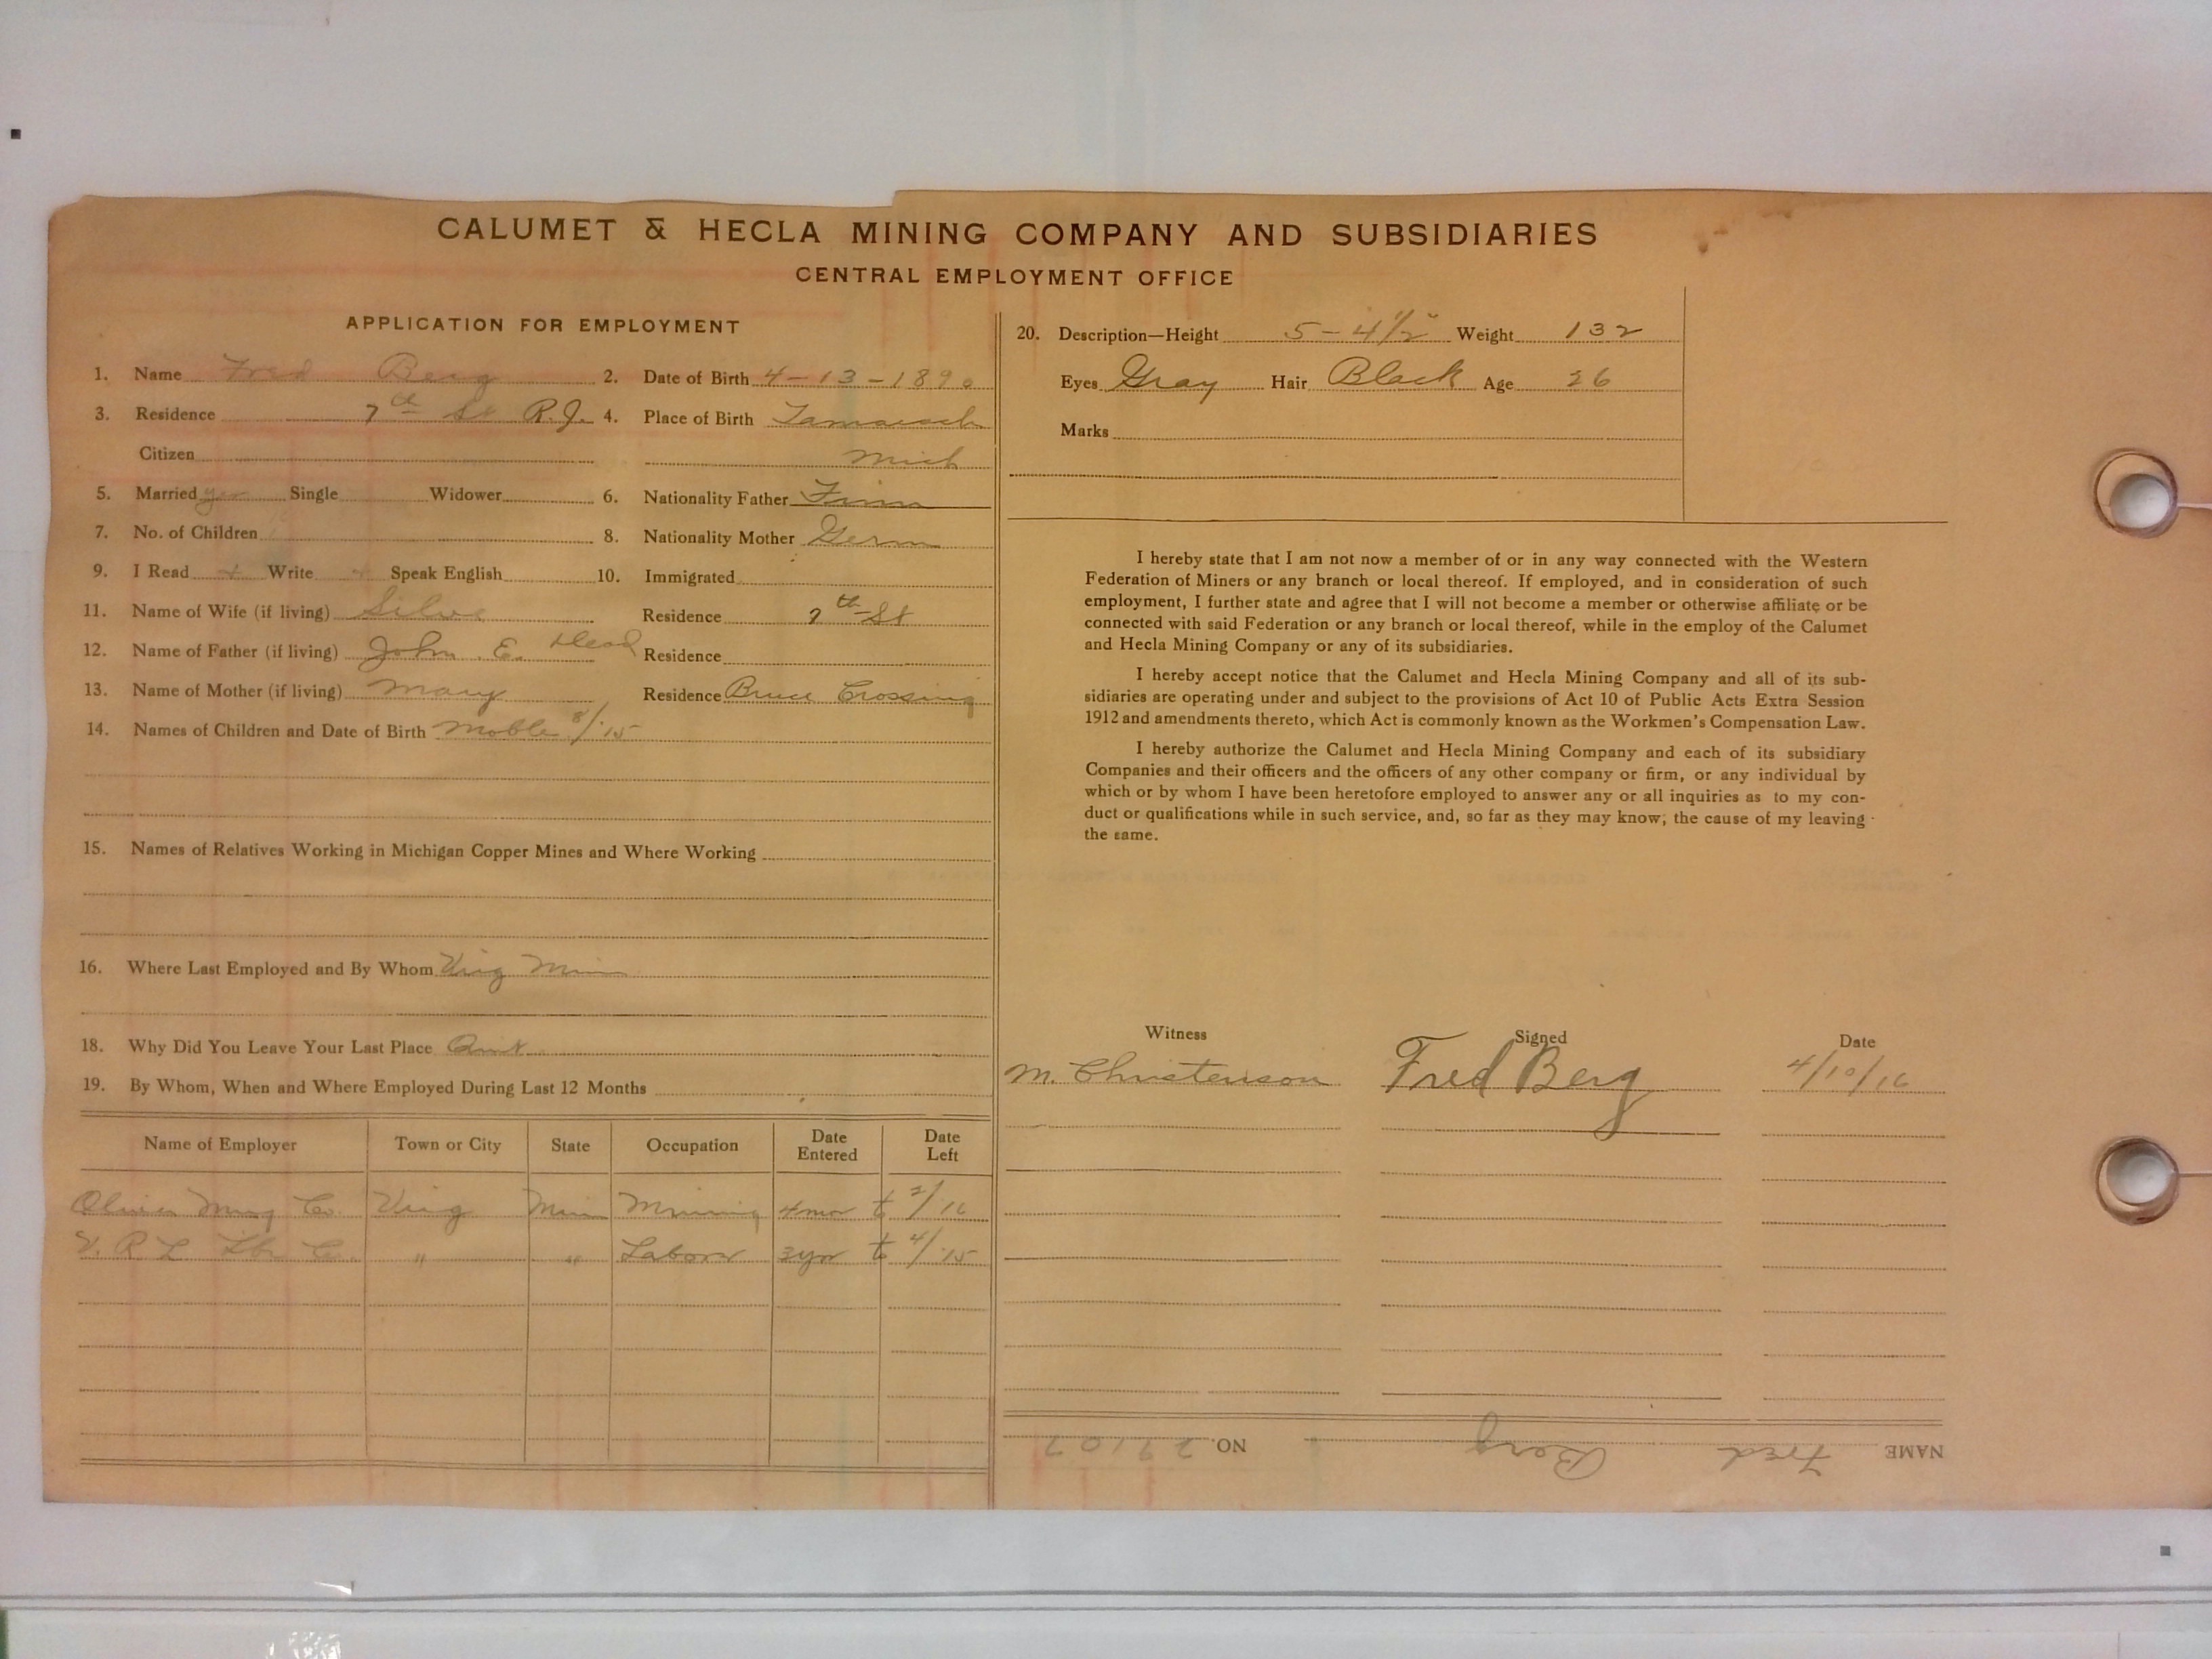 CALUMET & HECLA MINING COMPANY AND SUBSIDIARIES
CENTRAL EMPLOYMENT OFFICE
APPLICATION FOR EMPLOYMENT
1. Name Fred Berg 2. Date of Birth 4-13-1890
3. Residence 7th St R.J. 4. Place of Birth Tamarack
Citizen Mich
5. Married yes Single Widower 6. Nationality Father Finn
7. No. of Children 8. Nationality Mother Germ
9. I Read + Write + Speak English 10. Immigrated
11. Name of Wife (if living) Residence 7th St
12. Name of Father (if living) John E. Dead Residence
13. Name of Mother (if living) Mary Residence Bruce Crossing
14. Names of Children and Date of Birth Moble 8/15
15. Names of Relatives Working in Michigan Copper Mines and Where Working
16. Where Last Employed and By Whom Minn
18. Why Did You Leave Your Last Place Quit
19. By Whom, When and Where Employed During Last 12 Months
Name of Employer Town or City State Occupation Date Entered Date Left
Oliver Ming Co. Minn Mining 4mo to 2/16
V. R L Lbr Co. " " Labor 3yr to 4/15
20. Description—Height 5-4½" Weight 132
Eyes Gray Hair Black Age 26
Marks
I hereby state that I am not now a member of or in any way connected with the Western
Federation of Miners or any branch or local thereof. If employed, and in consideration of such
employment, I further state and agree that I will not become a member or otherwise affiliate or be
connected with said Federation or any branch or local thereof, while in the employ of the Calumet
and Hecla Mining Company or any of its subsidiaries.
I hereby accept notice that the Calumet and Hecla Mining Company and all of its sub-
sidiaries are operating under and subject to the provisions of Act 10 of Public Acts Extra Session
1912 and amendments thereto, which Act is commonly known as the Workmen's Compensation Law.
I hereby authorize the Calumet and Hecla Mining Company and each of its subsidiary
Companies and their officers and the officers of any other company or firm, or any individual by
which or by whom I have been heretofore employed to answer any or all inquiries as to my con-
duct or qualifications while in such service, and, so far as they may know, the cause of my leaving
the same.
Witness Signed Date
M. Christenson Fred Berg 4/10/16
NAME Fred Berg NO. 29107